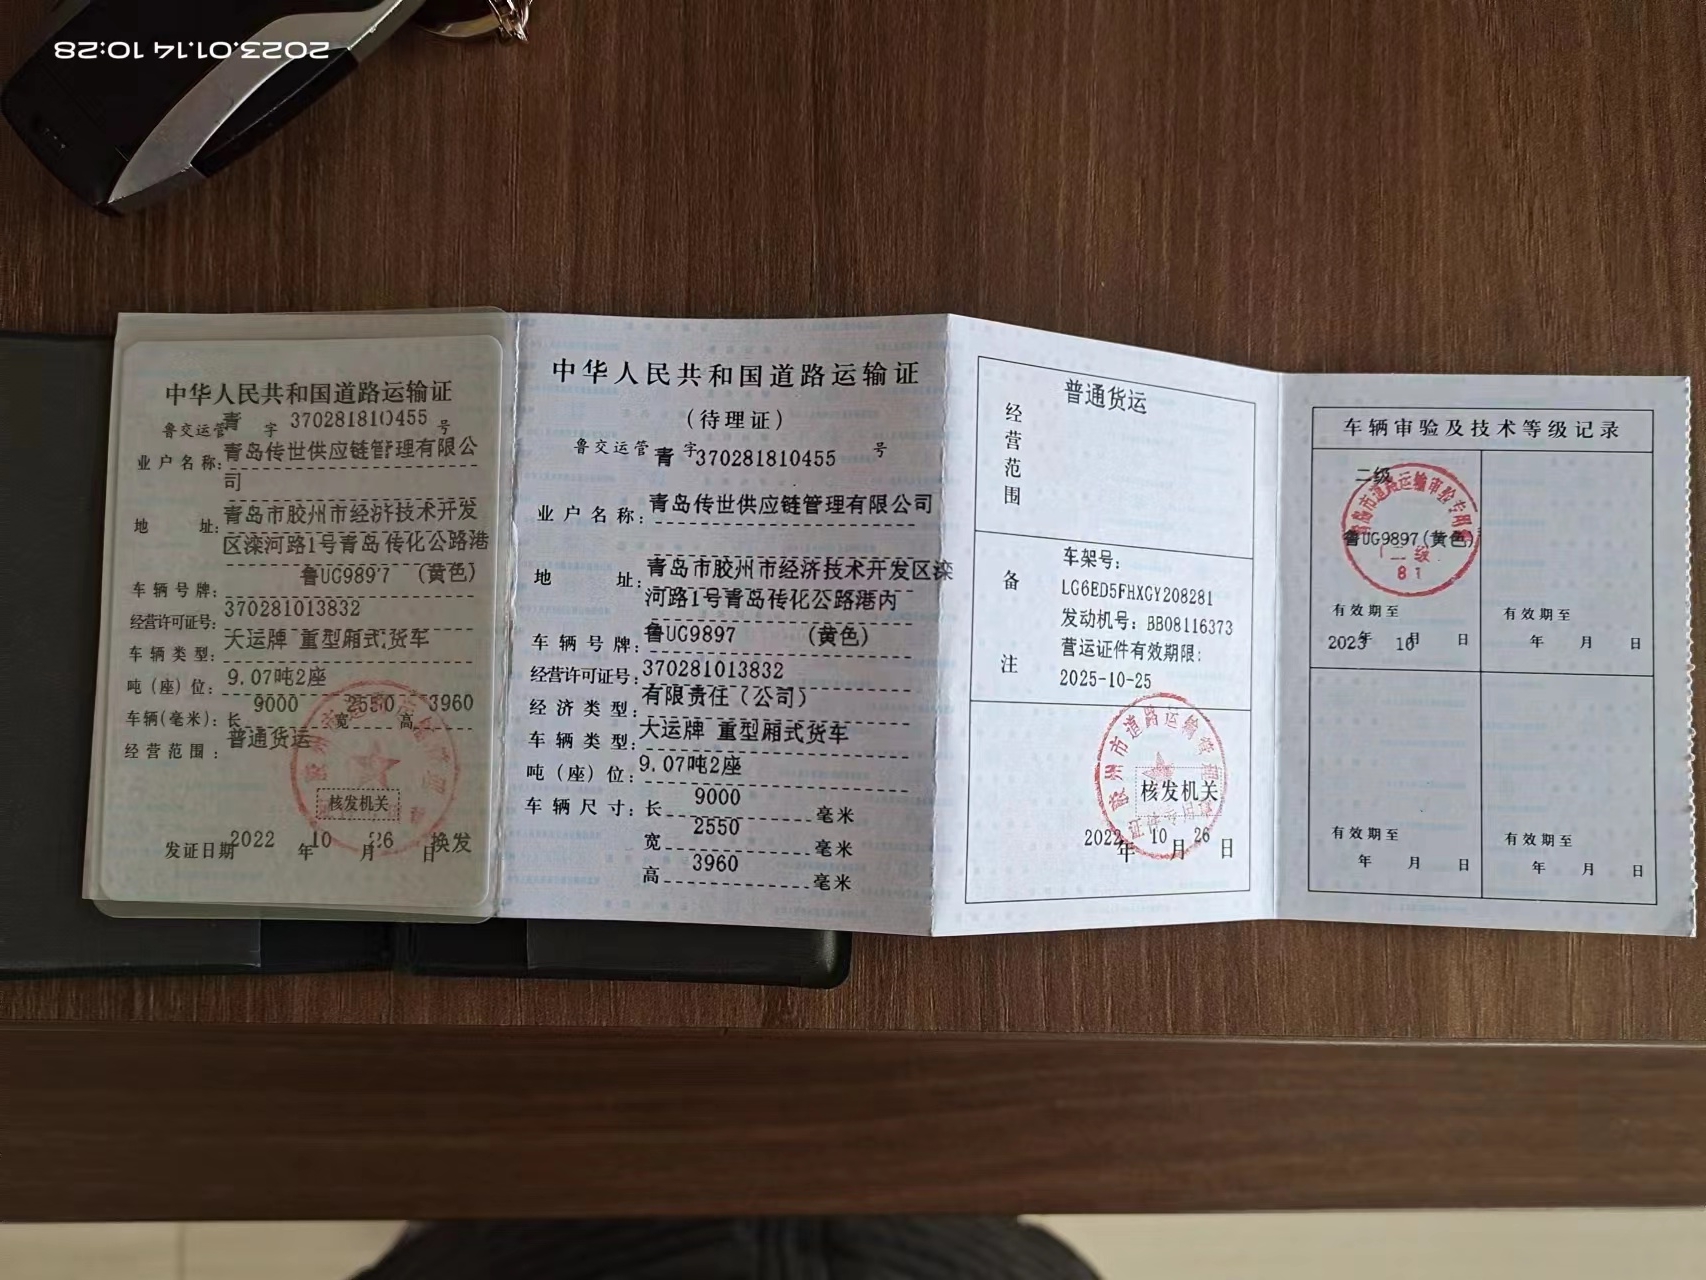 2023.01.14 10:28
中华人民共和国道路运输证
鲁交运管 青 字 370281810455 号
业户名称: 青岛传世供应链管理有限公
司
地 址: 青岛市胶州市经济技术开发
区滦河路1号青岛传化公路港
车辆号牌: 鲁UG9897 (黄色)
经营许可证号: 370281013832
车辆类型: 大运牌 重型厢式货车
吨(座)位: 9.07吨2座
车辆(毫米): 长 9000 宽 2550 高 3960
经营范围: 普通货运
核发机关
发证日期 2022 年 10 月 26 日 换发
中华人民共和国道路运输证
(待理证)
鲁交运管 青 字 370281810455 号
业户名称: 青岛传世供应链管理有限公司
地 址: 青岛市胶州市经济技术开发区滦
河路1号青岛传化公路港内
车辆号牌: 鲁UG9897 (黄色)
经营许可证号: 370281013832
经济类型: 有限责任(公司)
车辆类型: 大运牌 重型厢式货车
吨(座)位: 9.07吨2座
车辆尺寸: 长 9000 毫米
宽 2550 毫米
高 3960 毫米
经营范围
普通货运
备注
车架号:
LG6ED5FHXGY208281
发动机号: BB08116373
营运证件有效期限:
2025-10-25
核发机关
2022 年 10 月 26 日
车辆审验及技术等级记录
二级
青岛市道路运输审验专用章
鲁UG9897(黄色)
二级
81
有效期至
2023 年 10 月 日
有效期至
年 月 日
有效期至
年 月 日
有效期至
年 月 日